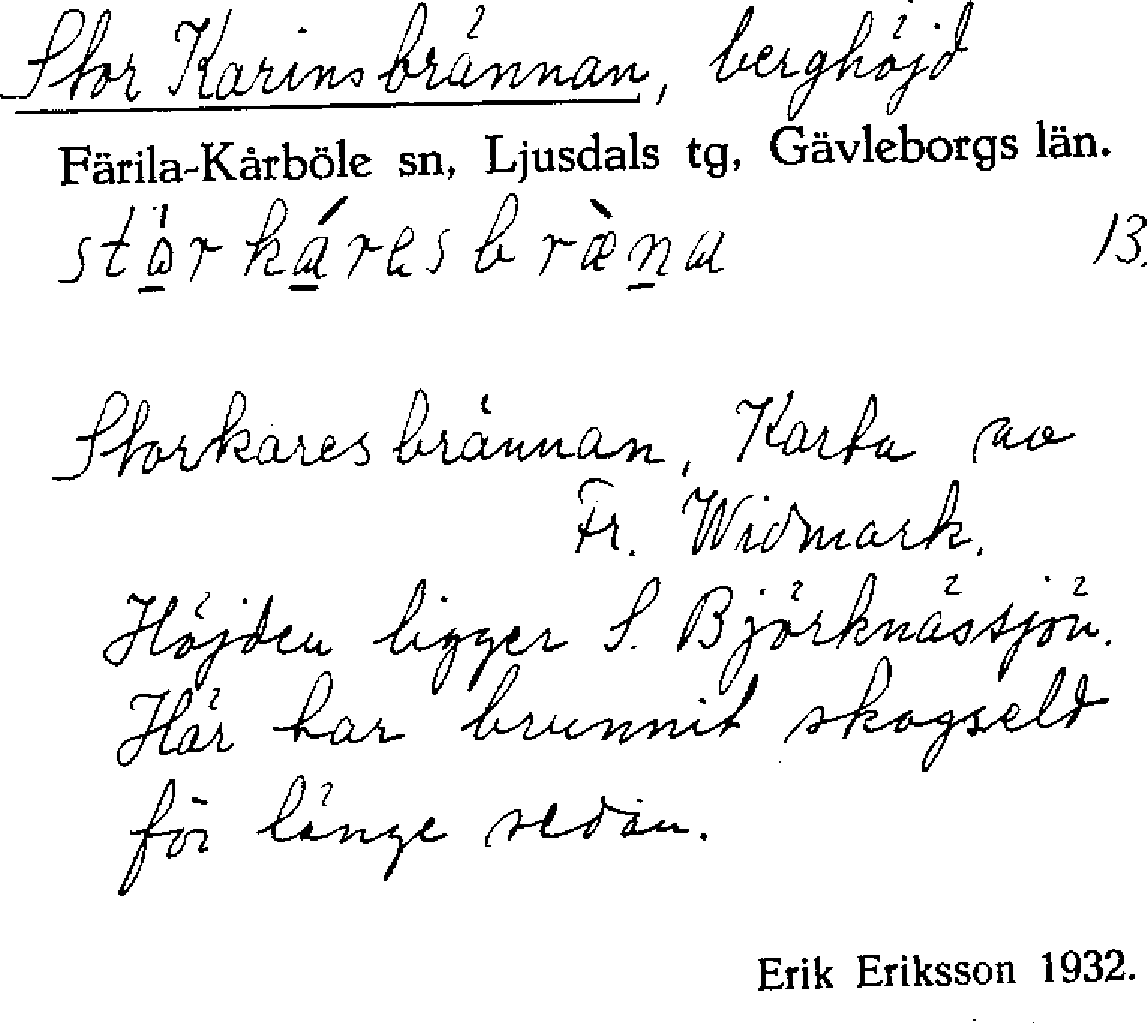 Stor Karinsbrännan, berghöjd
Färila-Kårböle sn, Ljusdals tg, Gävleborgs län.
13.
Storkaresbrännan, Karta av
Fr. Widmark.
Höjden ligger S. Björknässjön.
Här har brunnit skogseld
för länge sedan.
Erik Eriksson 1932.